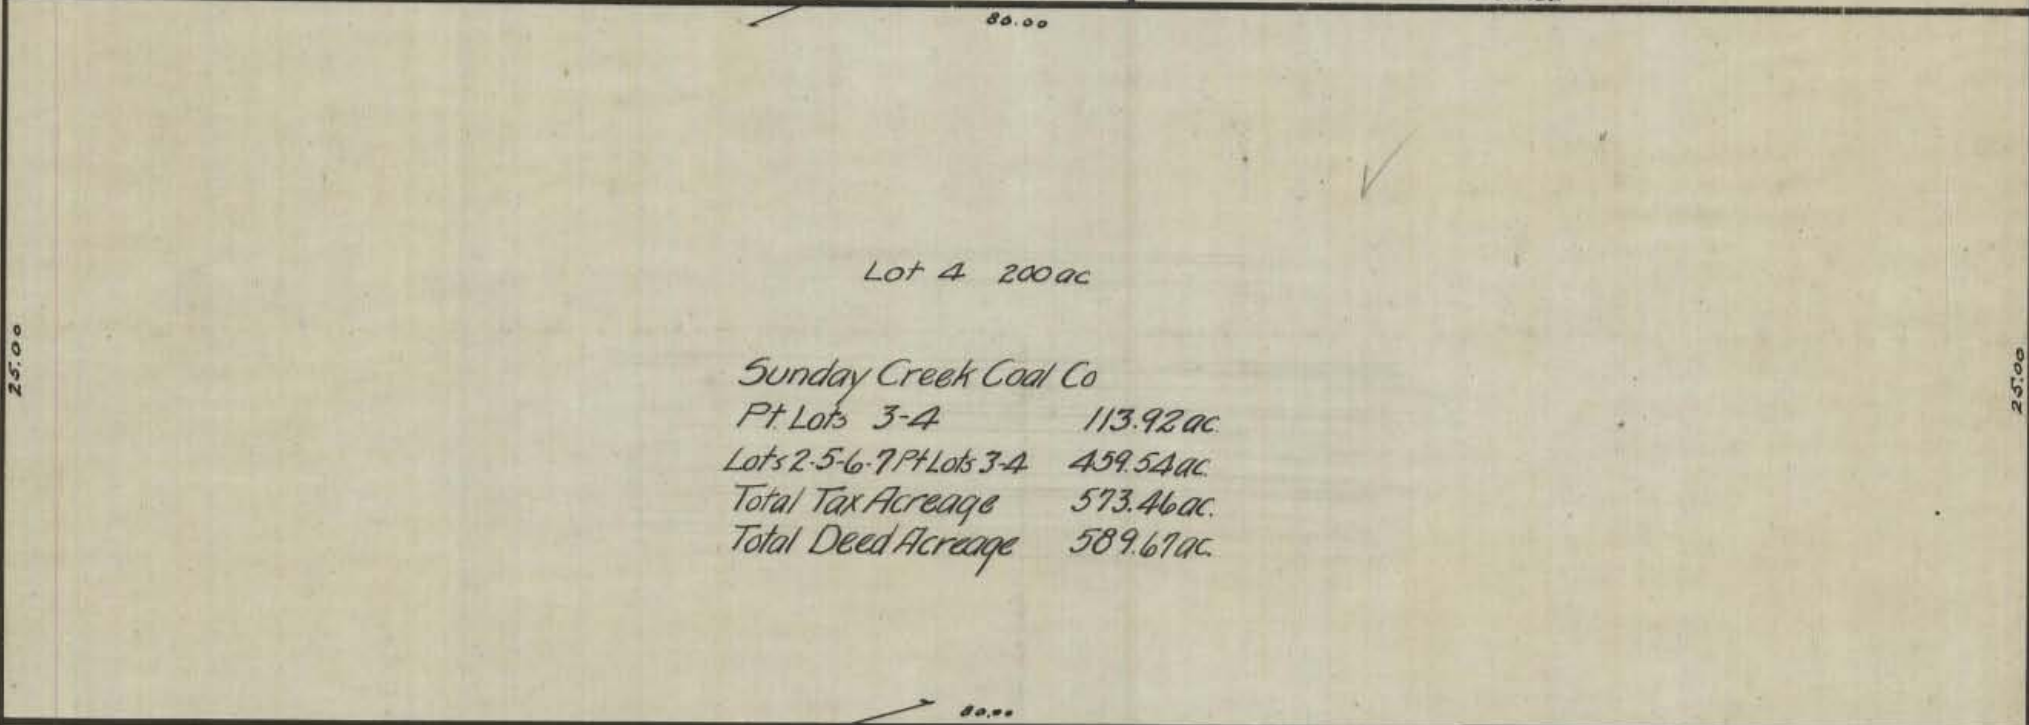 80.00
Lot 4 200 ac
25.00
25.00
Sunday Creek Coal Co
Pt Lots 3-4 113.92 ac.
Lots 2-5-6-7 Pt Lots 3-4 459.54 ac.
Total Tax Acreage 573.46 ac.
Total Deed Acreage 589.67 ac.
80.00